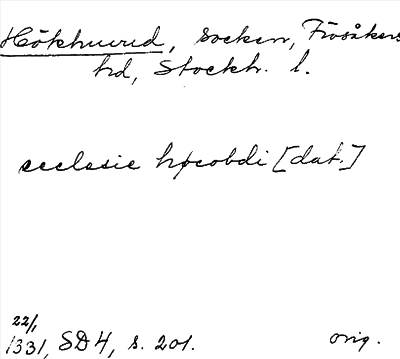 Hökhuvud, socken, Frösåkers
hd, Stockh. l.
ecclesie høcobdi [dat.]
22/1
1331, SD 4, s. 201. orig.